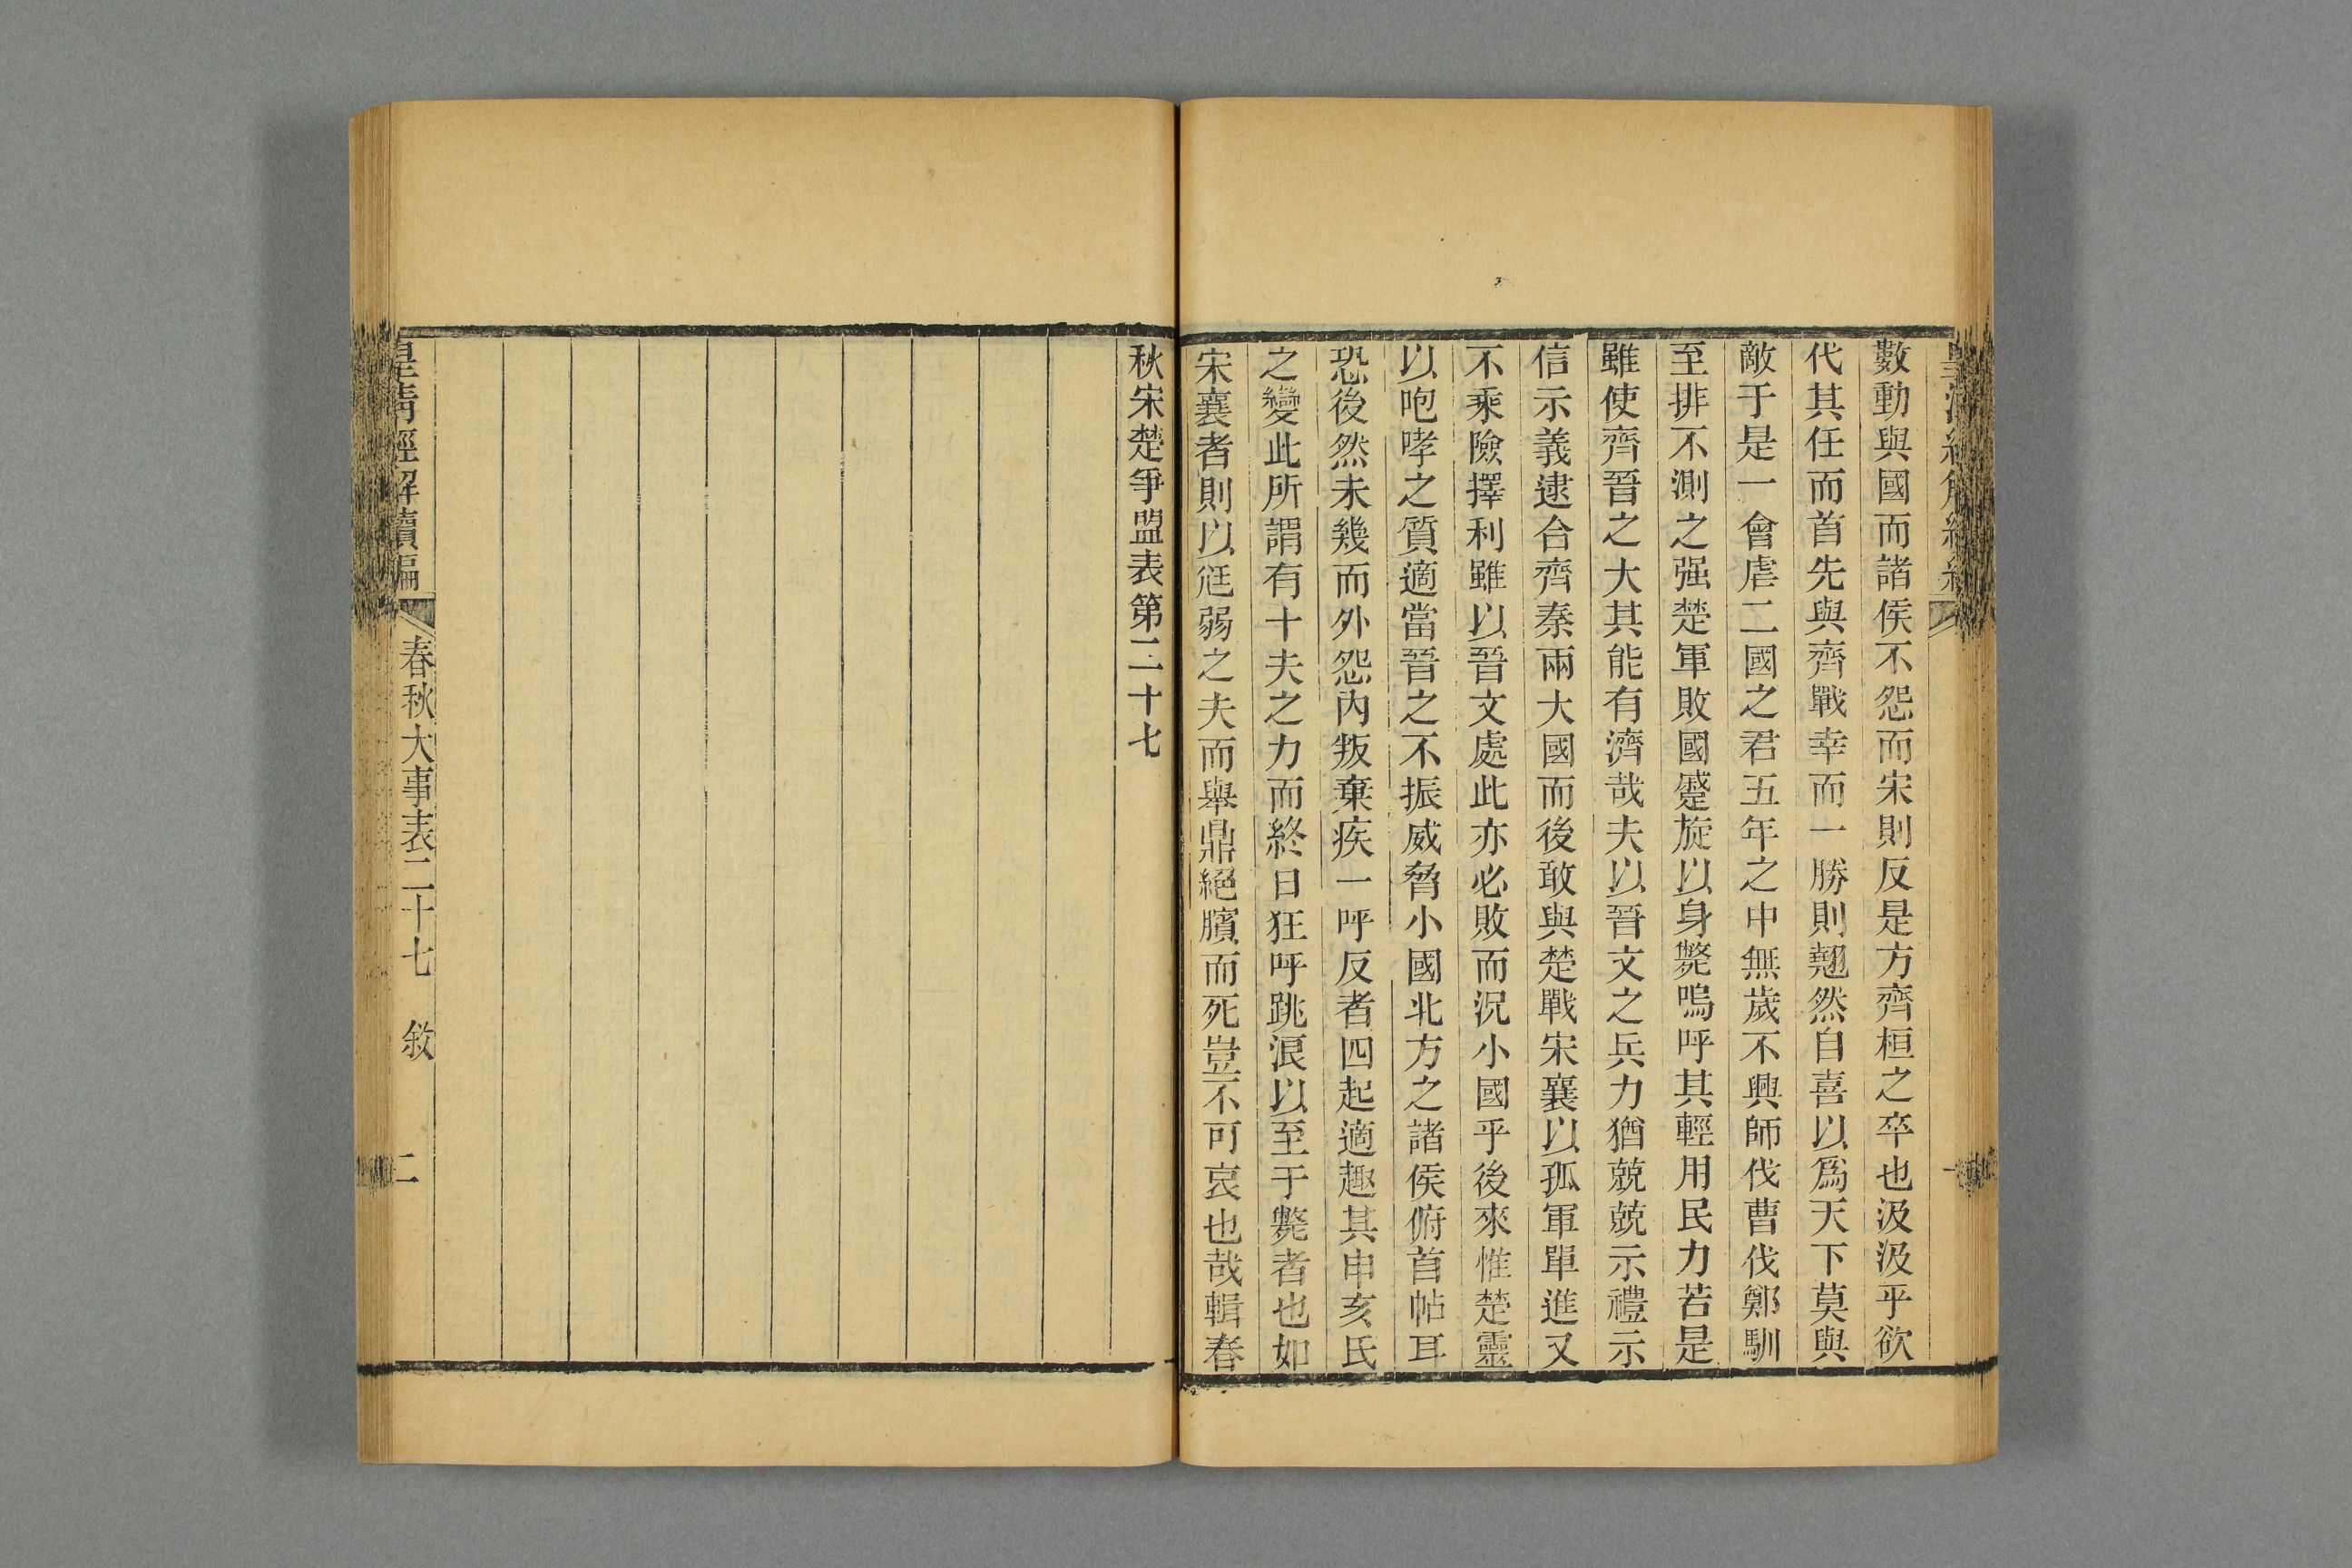 數動與國而諸侯不怨而宋則反是方齊桓之卒也汲汲乎欲
代其任而首先與齊戰幸而一勝則翹然自喜以爲天下莫與
敵于是一會虐二國之君五年之中無歲不興師伐曹伐鄭馴
至排不測之强楚軍敗國蹙旋以身斃嗚呼其輕用民力若是
雖使齊晉之大其能有濟哉夫以晉文之兵力猶兢兢示禮示
信示義逮合齊秦兩大國而後敢與楚戰宋襄以孤軍單進又
不乘險擇利雖以晉文處此亦必敗而況小國乎後來惟楚靈
以咆哮之質適當晉之不振威脅小國北方之諸侯俯首帖耳
恐後然未幾而外怨內叛棄疾一呼反者四起適趣其申亥氏
之變此所謂有十夫之力而終日狂呼跳浪以至于斃者也如
宋襄者則以尫弱之夫而舉鼎絕臏而死豈不可哀也哉輯春
秋宋楚爭盟表第二十七
皇清經解續編
春秋大事表二十七 敘 二